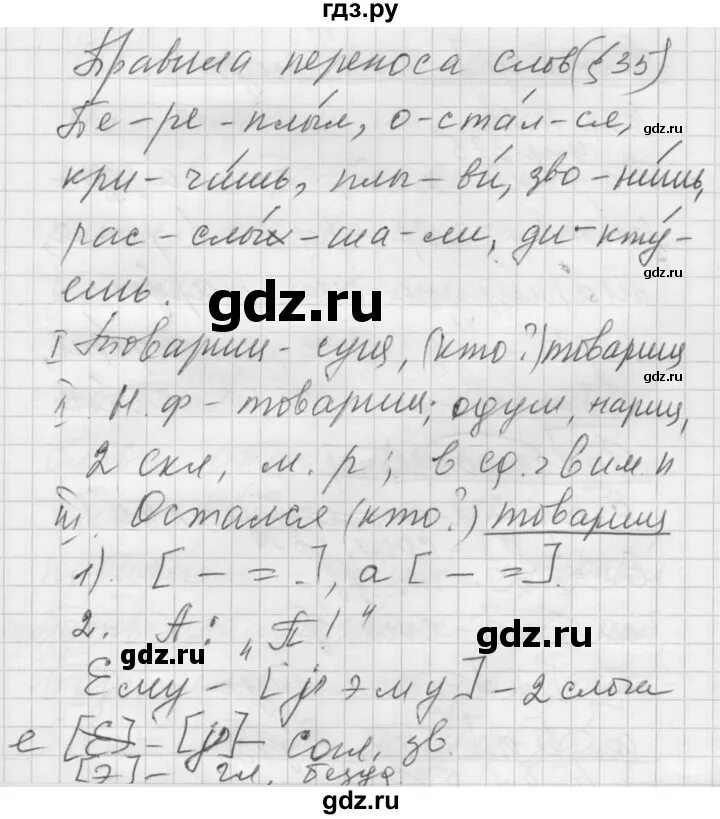 гдз.ру
Правила переноса слов (§ 35)
Пе-ре-плы́л, о-ста́л-ся,
gdz.ru
кри-чи́шь, плы-ви́, зво-ни́шь,
рас-слы́х-ша-ли, ди-кту́-
gdz.ru
ешь.
gdz.ru
I Товарищ - сущ, (кто?) товарищ
gdz.ru
II. Н. ф - товарищ; одуш, нариц,
2 скл, м. р; в ед. ч в им п
III. Остался (кто?) товарищ
1). [ - = . ], а [ - = ].
2. А: „П!“
gdz.ru
gdz.ru
Ему - [j э м у] - 2 слога
е [е] - [j] - согл, зв.
[э] - гл. безуд
gdz.ru
gdz.ru